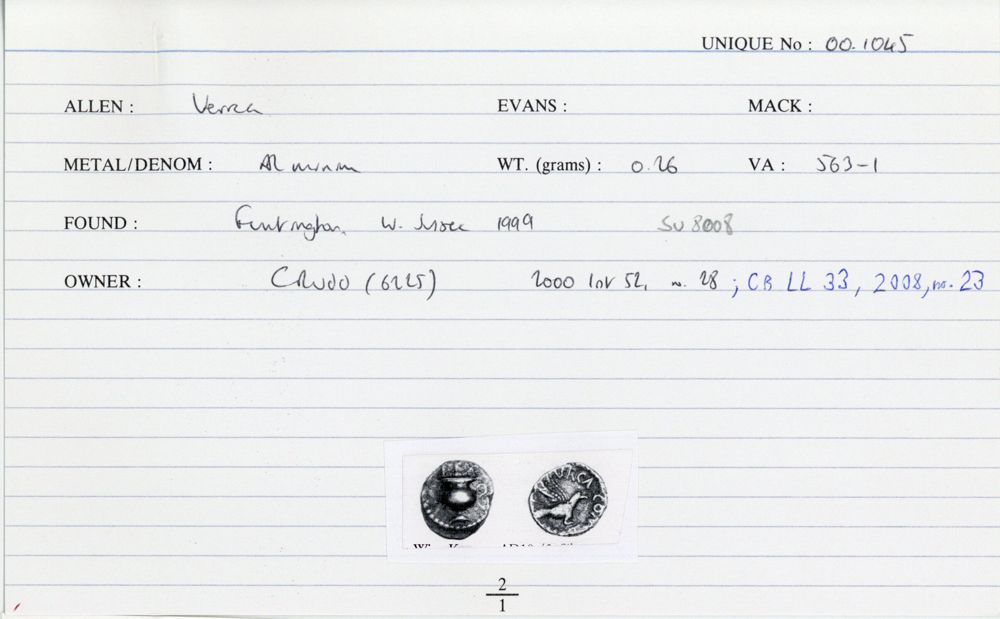 UNIQUE No : 00.1045
ALLEN : Verica EVANS : MACK :
METAL/DENOM : AR minim WT. (grams) : 0.26 VA : 563-1
FOUND : Funtington, W. Sussex 1999 SU 8008
OWNER : CRUDO (6225) 2000 Inv 52, no. 28 ; CR LL 33, 2008, no. 23
2
1